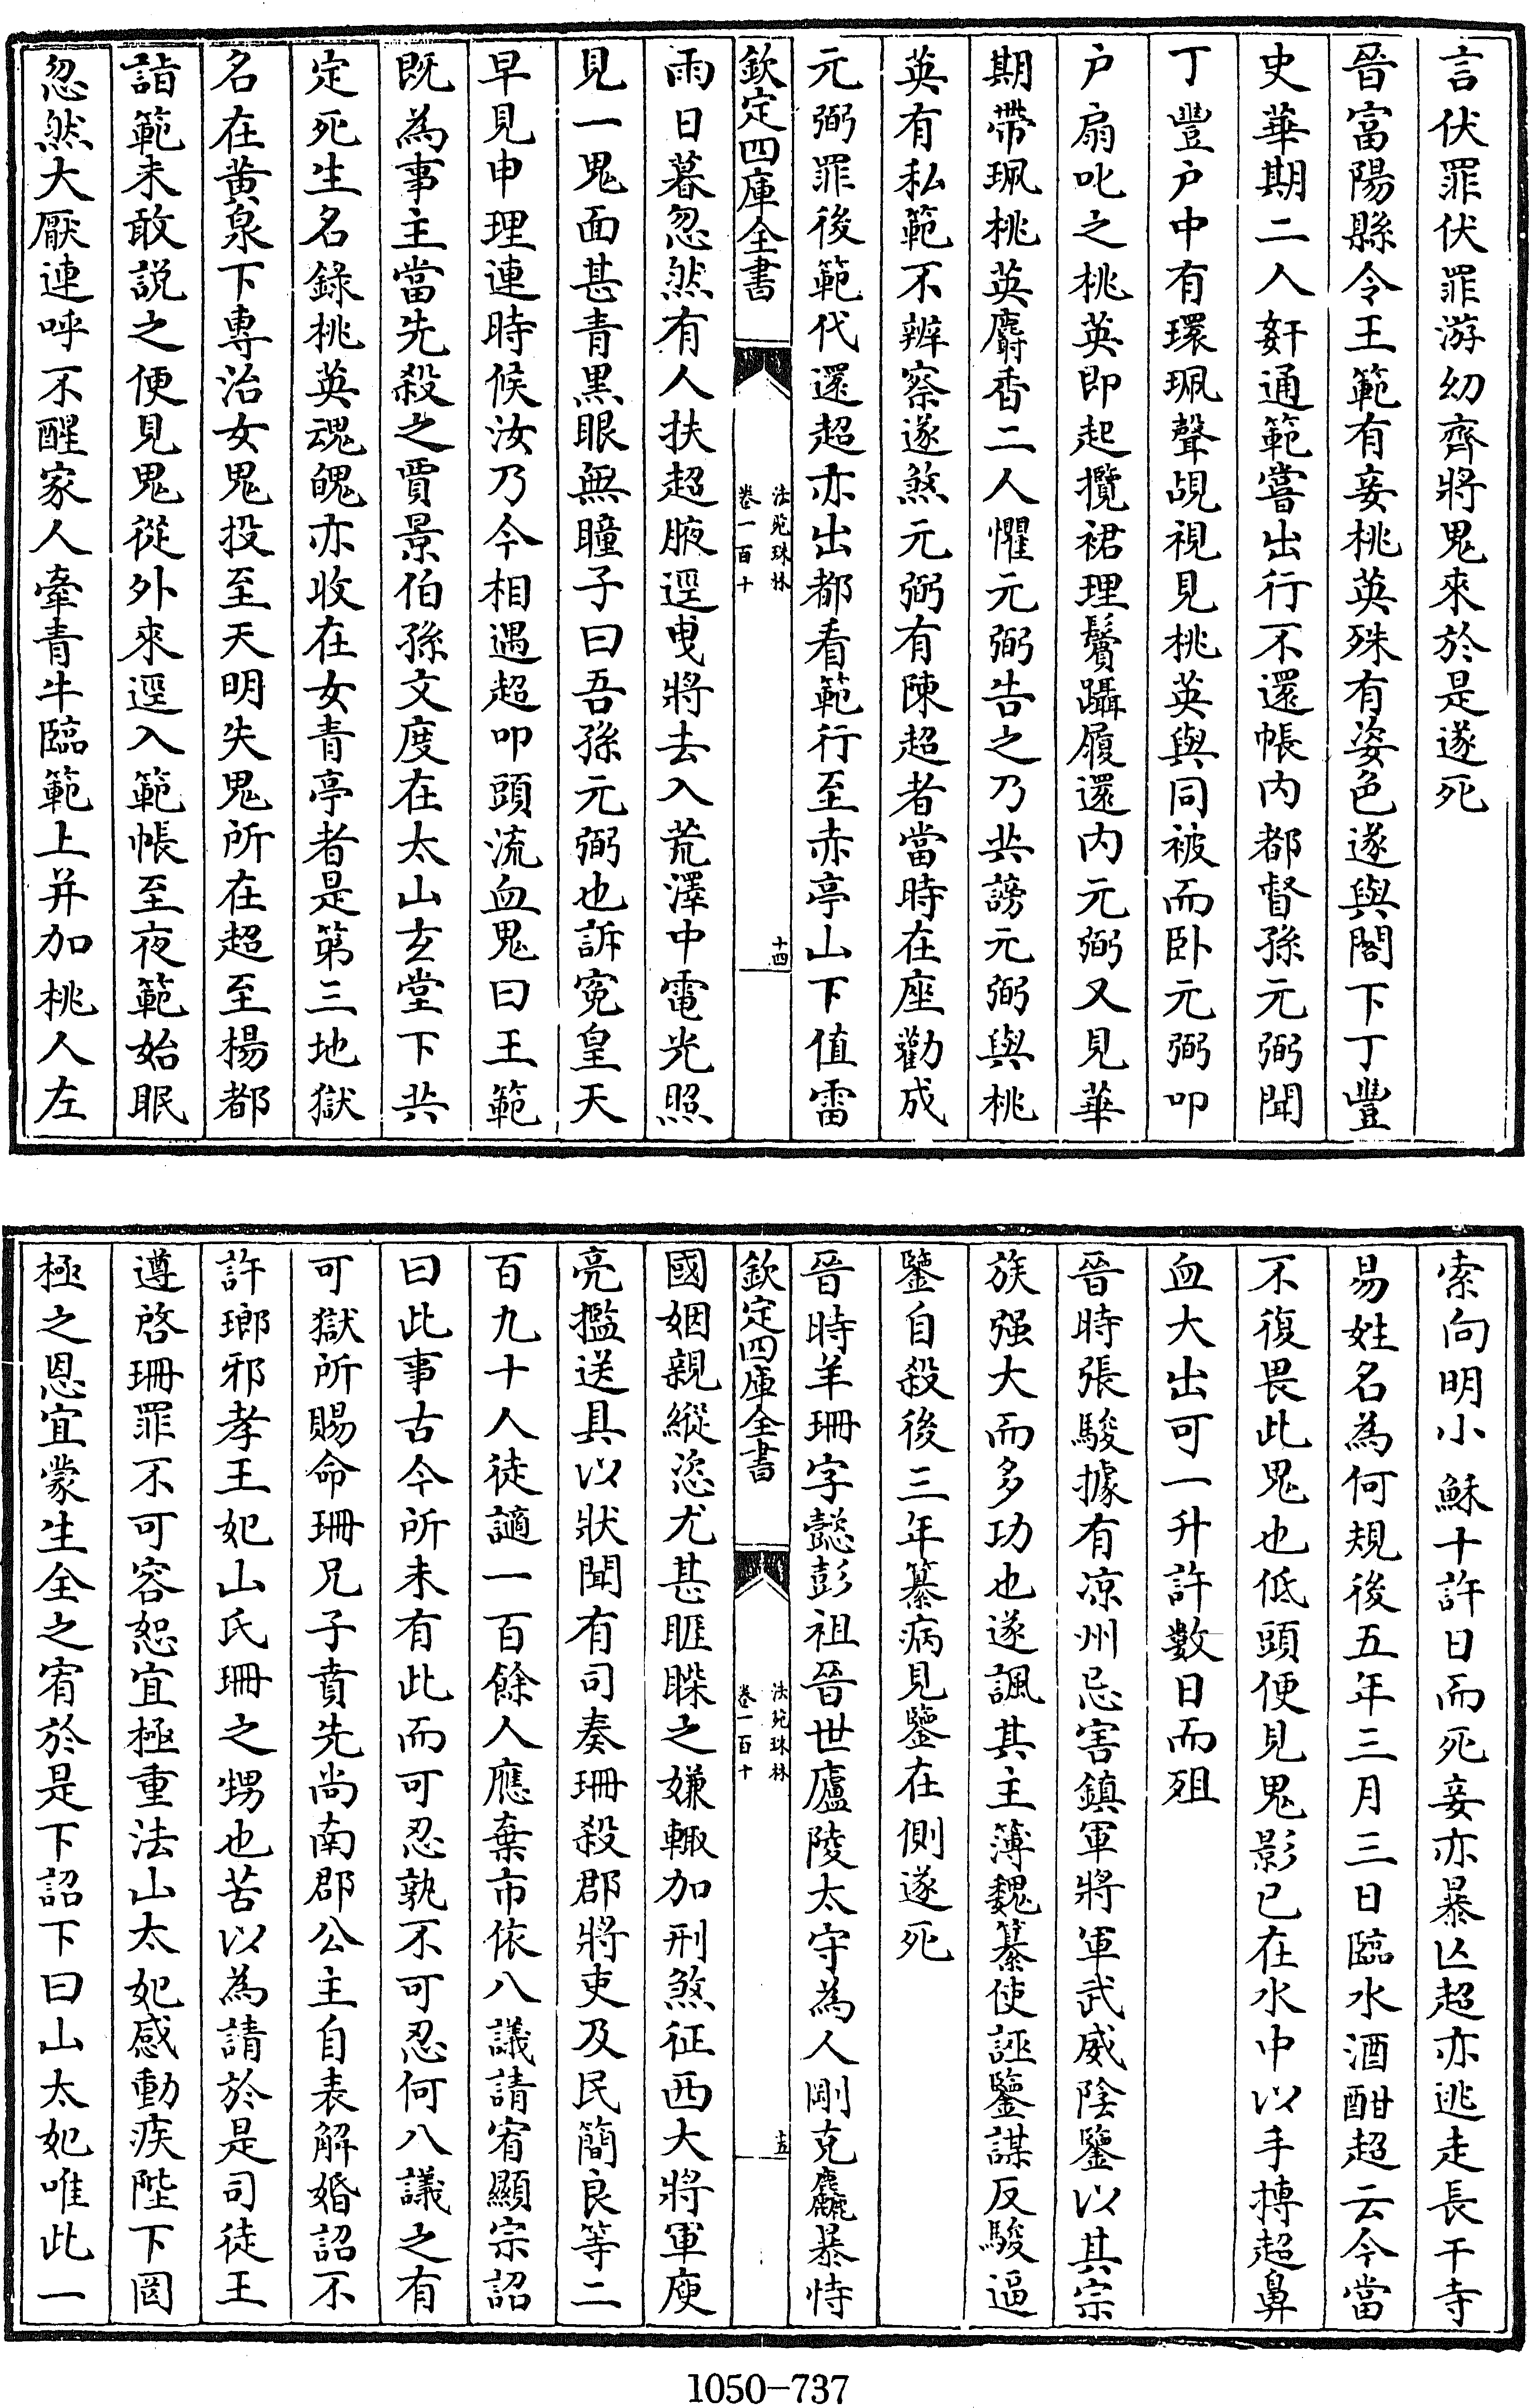 言伏罪伏罪游幼齊將鬼來於是遂死
晉富陽縣令王範有妾桃英殊有姿色遂與閤下丁豐
史華期二人姧通範嘗出行不還帳内都督孫元弼聞
丁豐户中有環珮聲覘視見桃英與同被而卧元弼叩
户扇叱之桃英即起攬裙理鬢躡履還内元弼又見華
期帶珮桃英麝香二人懼元弼告之乃共謗元弼與桃
英有私範不辨察遂煞元弼有陳超者當時在座勸成
元弼罪後範代還超亦出都看範行至赤亭山下值雷
欽定四庫全書
法苑珠林
卷一百十
十四
雨日暮忽然有人扶超腋逕曳將去入荒澤中電光照
見一鬼面甚青黑眼無瞳子曰吾孫元弼也訴寃皇天
早見申理連時候汝乃今相遇超叩頭流血鬼曰王範
既為事主當先殺之賈景伯孫文度在太山玄堂下共
定死生名錄桃英魂魄亦收在女青亭者是第三地獄
名在黄泉下專治女鬼投至天明失鬼所在超至楊都
詣範未敢説之便見鬼從外來逕入範帳至夜範始眠
忽然大厭連呼不醒家人牽青牛臨範上并加桃人左
索向明小穌十許日而死妾亦暴亾超亦逃走長干寺
易姓名為何規後五年三月三日臨水酒酣超云今當
不復畏此鬼也低頭便見鬼影已在水中以手搏超鼻
血大出可一升許數日而殂
晉時張駿據有凉州忌害鎮軍將軍武威陰鑒以其宗
族强大而多功也遂諷其主簿魏纂使誣鑒謀反駿逼
鑒自殺後三年纂病見鑒在側遂死
晉時羊珊字懿彭祖晉世廬陵太守為人剛克麤暴恃
欽定四庫全書
法苑珠林
卷一百十
十五
國姻親縱恣尤甚睚睬之嫌輙加刑煞征西大將軍庾
亮檻送具以狀聞有司奏珊殺郡將吏及民簡良等二
百九十人徒謫一百餘人應棄市依八議請宥顯宗詔
曰此事古今所未有此而可忍孰不可忍何八議之有
可獄所賜命珊兄子賁先尚南郡公主自表解婚詔不
許瑯邪孝王妃山氏珊之甥也苦以為請於是司徒王
遵啓珊罪不可容恕宜極重法山太妃感動疾陛下罔
極之恩宜蒙生全之宥於是下詔下曰山太妃唯此一
1050-737